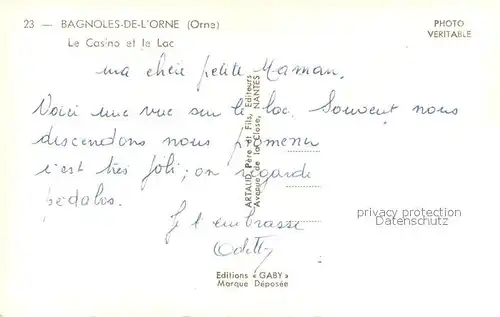 23 — BAGNOLES-DE-L'ORNE (Orne)
Le Casino et le Lac
PHOTO
VERITABLE
ma chère petite Maman.
Voici une vue sur le lac. Souvent nous
descendons nous promener
c'est très joli; on regarde
pédalos.
Je t'embrasse
Odette
ARTAUD Père et Fils, Editeurs
Avenue de la Close, NANTES
privacy protection
Datenschutz
Editions « GABY »
Marque Déposée